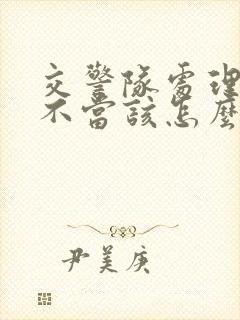 交警隊處理
不當該怎麼
尹美庚